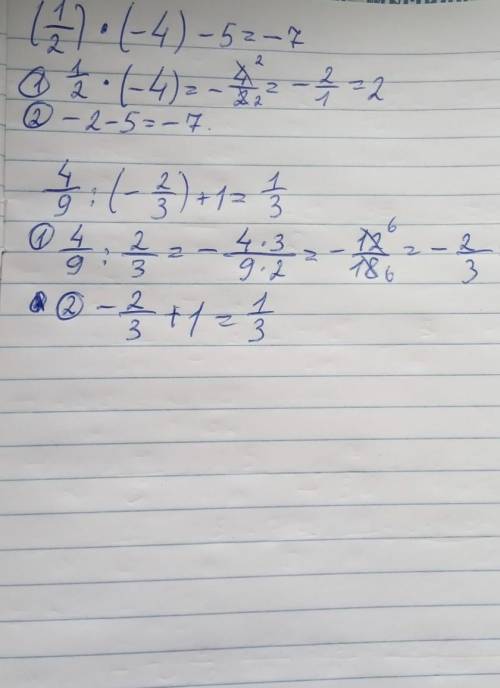 (1/2) · (-4) - 5 = -7
① 1/2 · (-4) = - 4²/2₂ = - 2/1 = 2
② - 2 - 5 = -7.
4/9 : (- 2/3) + 1 = 1/3
① 4/9 : 2/3 = - 4·3/9·2 = - 12⁶/18₆ = - 2/3
② - 2/3 + 1 = 1/3